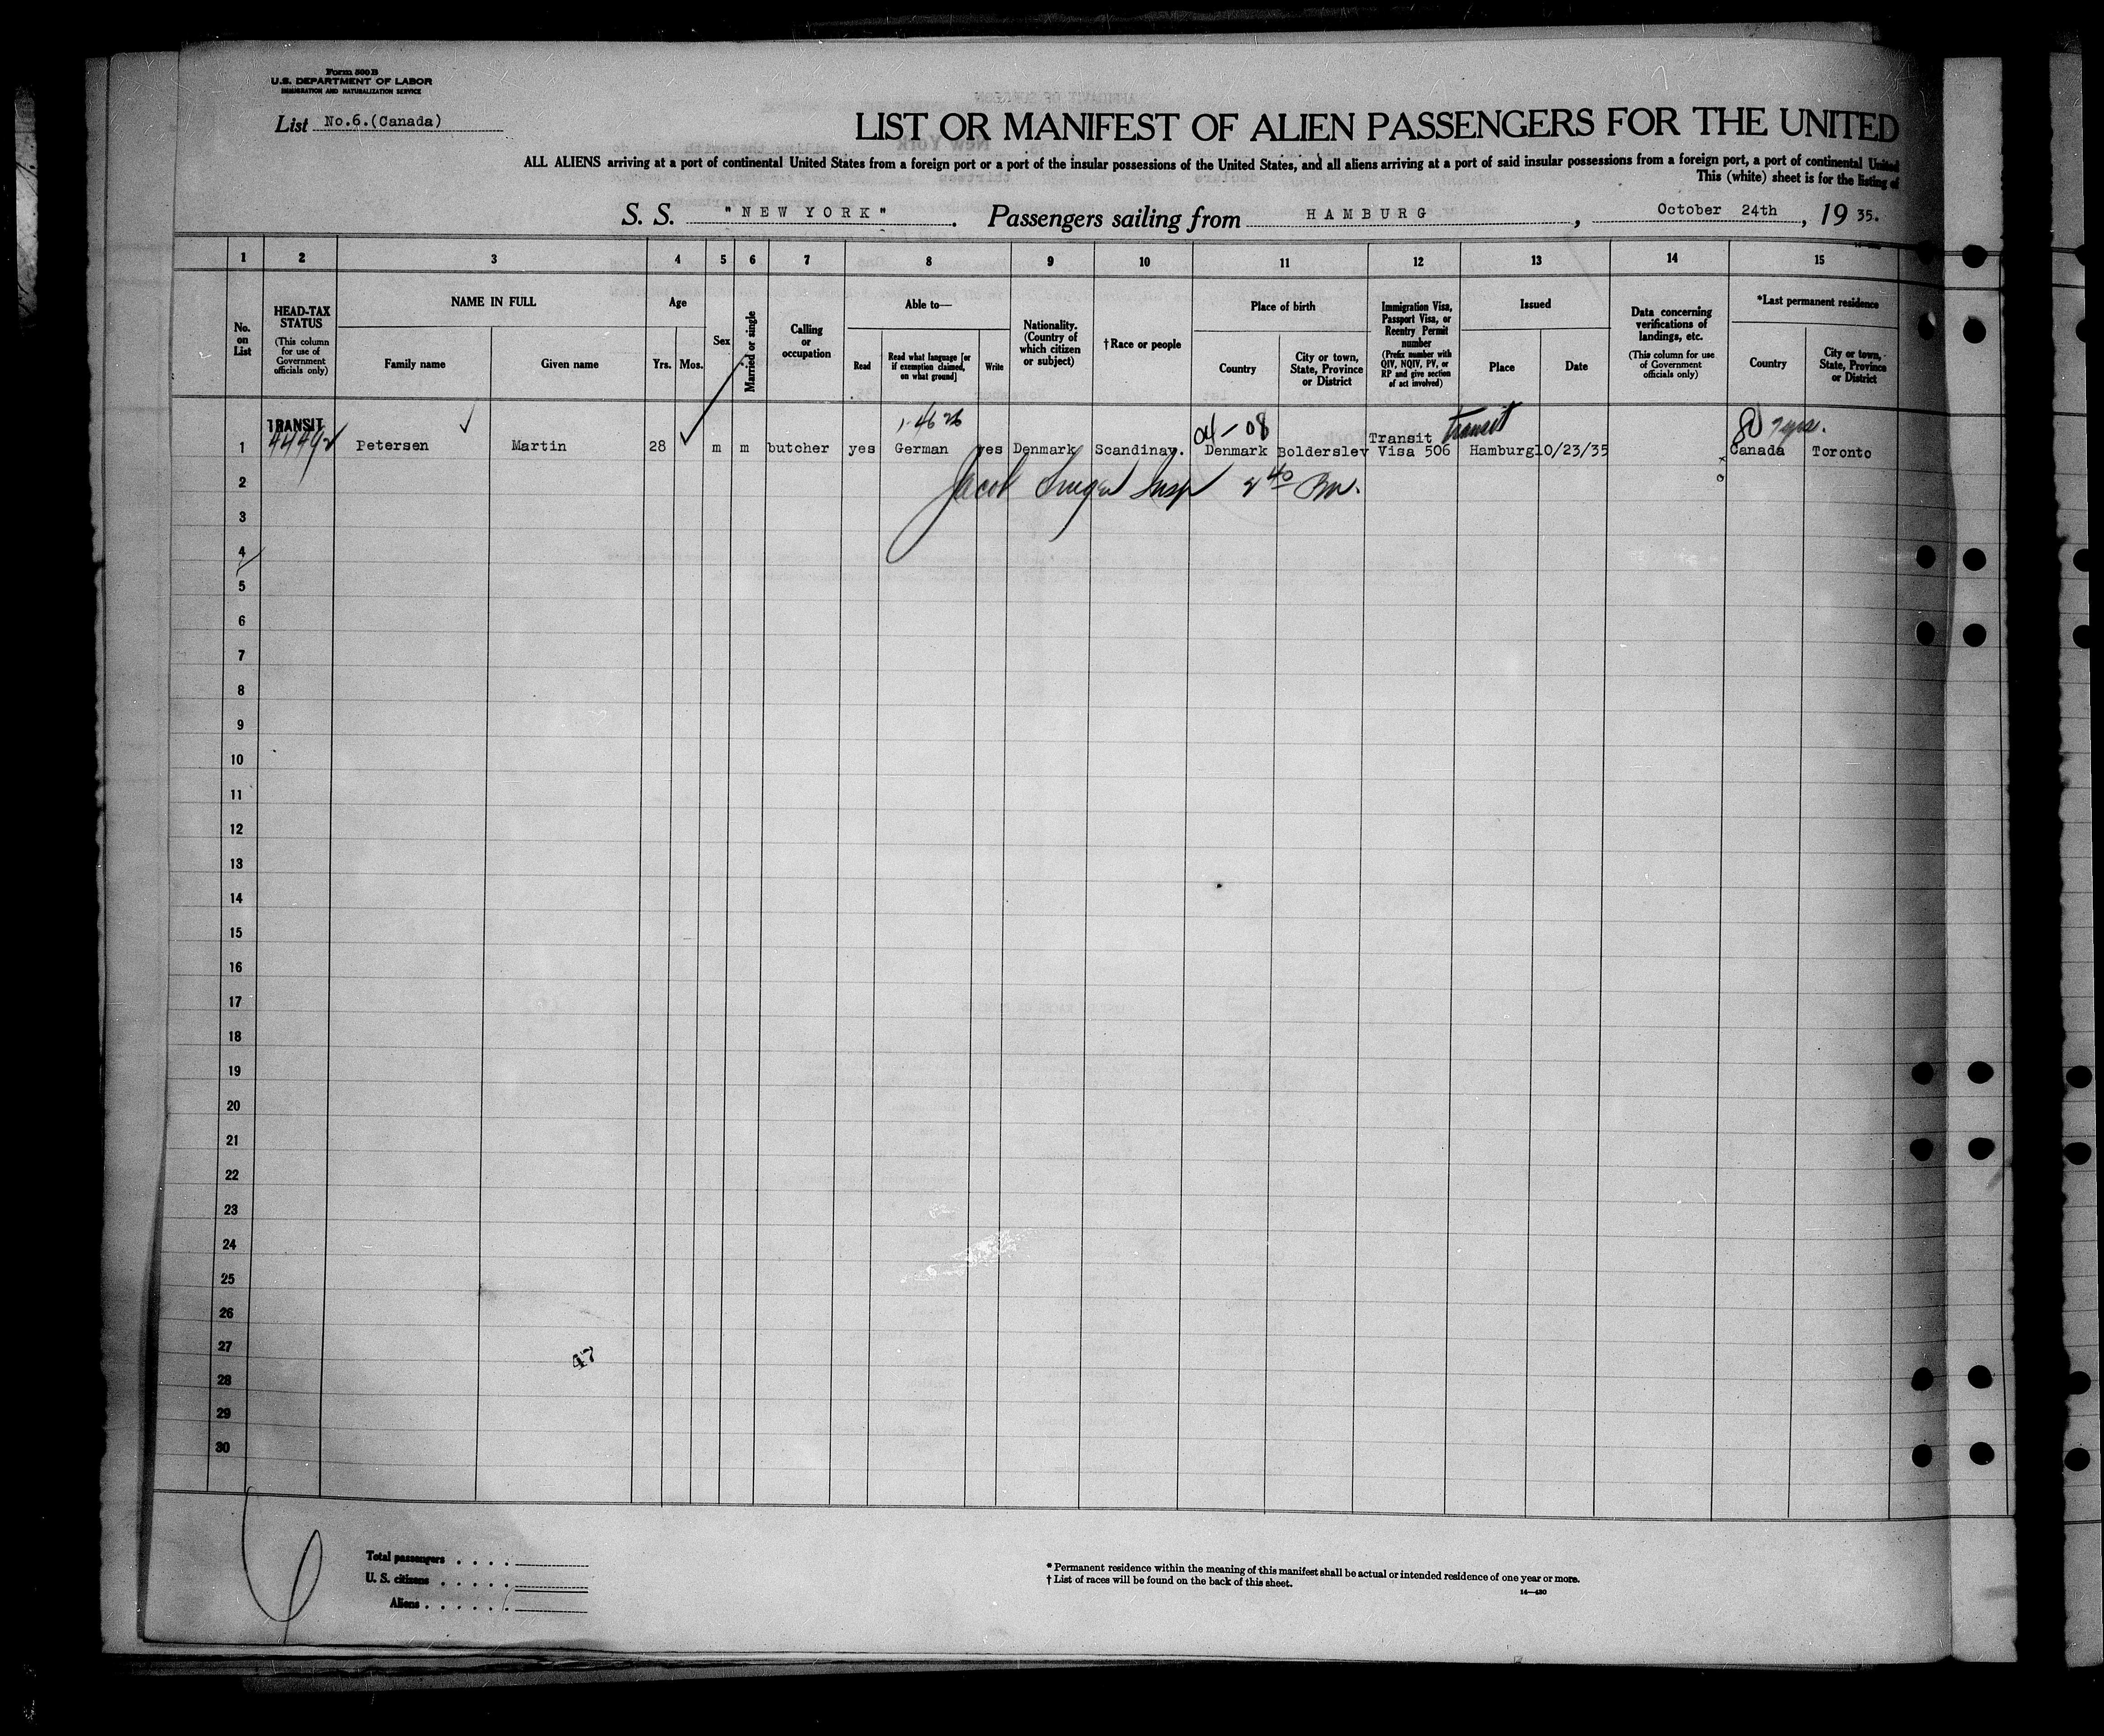 Form 500 B
U.S. DEPARTMENT OF LABOR
IMMIGRATION AND NATURALIZATION SERVICE
List No.6.(Canada)
LIST OR MANIFEST OF ALIEN PASSENGERS FOR THE UNITED
ALL ALIENS arriving at a port of continental United States from a foreign port or a port of the insular possessions of the United States, and all aliens arriving at a port of said insular possessions from a foreign port, a port of continental United
This (white) sheet is for the listing of
S. S. "NEW YORK". Passengers sailing from HAMBURG, October 24th, 19 35.
1 2 3 4 5 6 7 8 9 10 11 12 13 14 15
No. on List
HEAD-TAX STATUS (This column for use of Government officials only)
NAME IN FULL
Family name
Given name
Age
Yrs. Mos.
Sex
Married or single
Calling or occupation
Able to—
Read
Read what language [or if exemption claimed, on what ground]
Write
Nationality. (Country of which citizen or subject)
†Race or people
Place of birth
Country
City or town, State, Province or District
Immigration Visa, Passport Visa, or Reentry Permit number (Prefix number with QIV, NQIV, PV, or RP and give section of act involved)
Issued
Place
Date
Data concerning verifications of landings, etc. (This column for use of Government officials only)
*Last permanent residence
Country
City or town, State, Province or District
TRANSIT
04-08 Transit transit
1 Petersen Martin 28 m m butcher yes German yes Denmark Scandinav. Denmark Bolderslev Visa 506 Hamburg 10/23/35 Canada Toronto
2 Jacob Insp 2 40 Pm.
3
4
5
6
7
8
9
10
11
12
13
14
15
16
17
18
19
20
21
22
23
24
25
26
27
47
28
29
30
Total passengers . . . .
U. S. citizens . . . . .
Aliens . . . . . .
* Permanent residence within the meaning of this manifest shall be actual or intended residence of one year or more.
† List of races will be found on the back of this sheet.
14—430